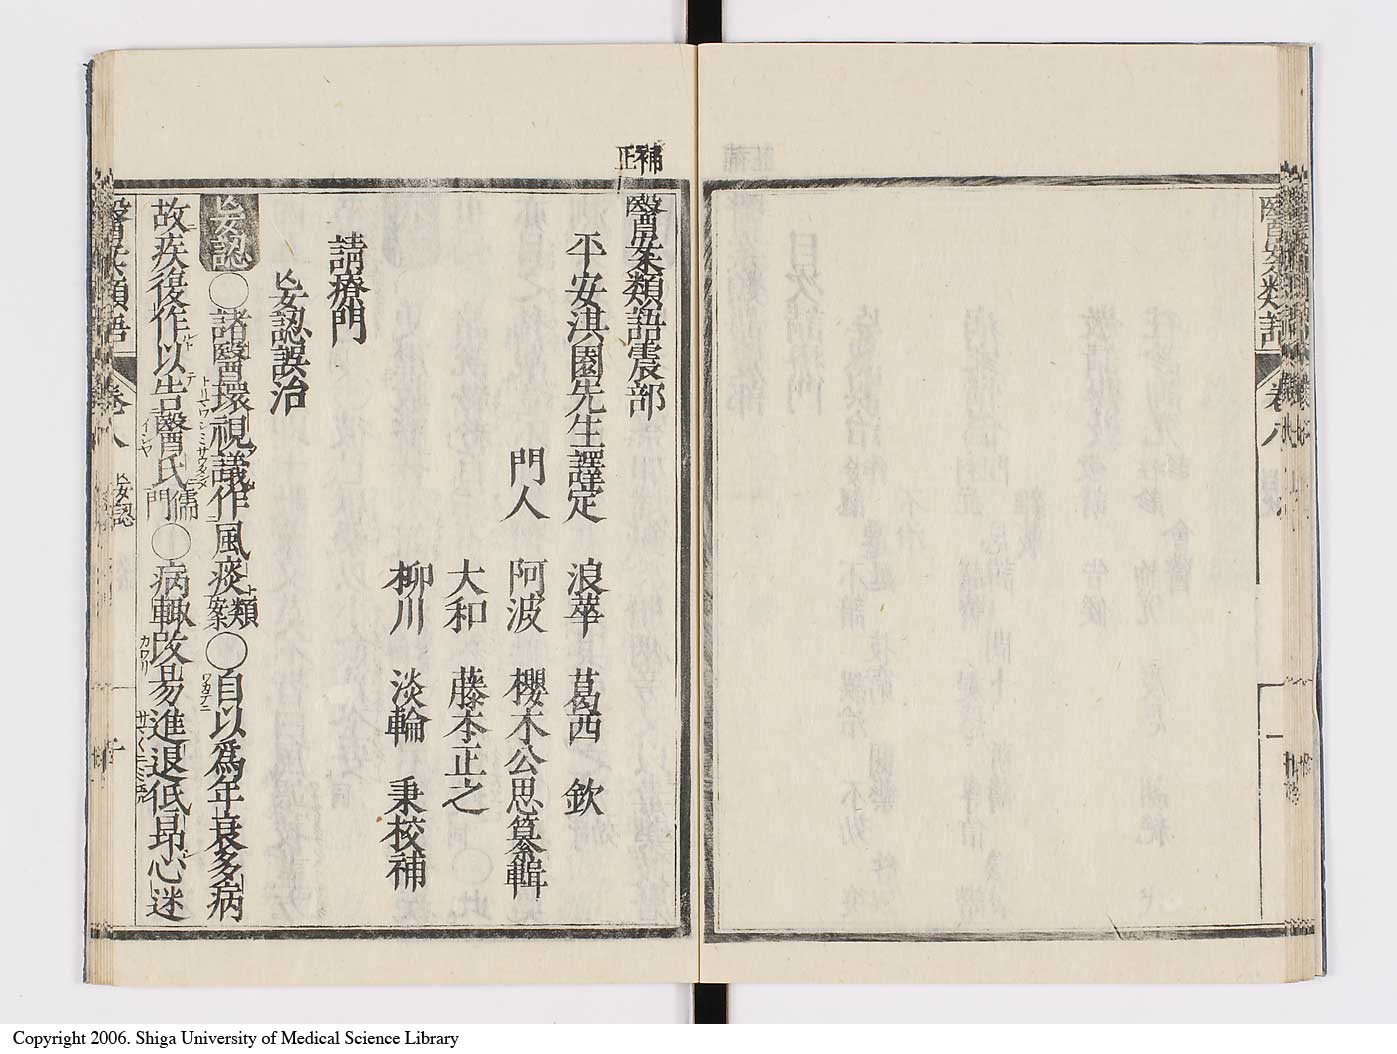 醫案類語 卷八 目 一
補正
醫案類語震部
平安淇園先生譯定 浪華 葛西 欽
門人 阿波 櫻木公思纂輯
大和 藤本正之
柳川 淡輪 秉校補
請療門
妄認誤治
妄認○諸醫環視議作風痰類案○自以爲年衰多病
故疾復作以告醫氏儒門○病輙改易進退低昂心迷
醫案類語 卷八 妄認
Copyright 2006. Shiga University of Medical Science Library